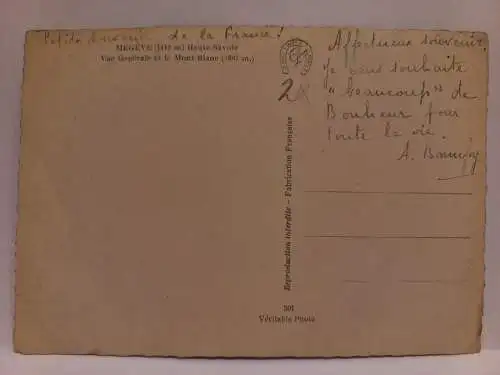 Petite Souvenir de la France!
MEGÈVE (1113 m.) Haute-Savoie
Vue Générale et le Mont-Blanc (4807 m.)
Affectueux souvenir.
Je vous souhaite
"beaucoup" de
Bonheur pour
toute la vie.
A.
2
Reproduction interdite – Fabrication Française
301
Véritable Photo